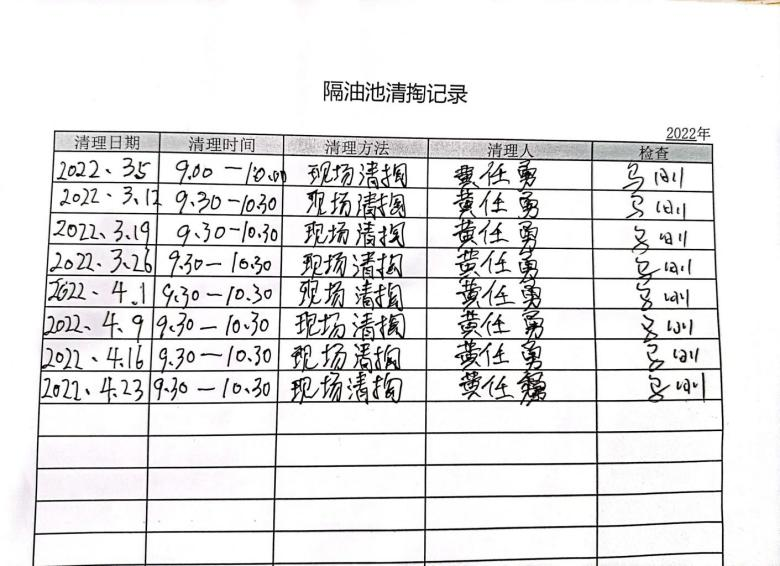 隔油池清掏记录
2022年
清理日期 清理时间 清理方法 清理人 检查
2022.3.5 9.00—10.00 现场清掏 黄任勇
2022.3.12 9.30—10.30 现场清掏 黄任勇
2022.3.19 9.30—10.30 现场清掏 黄任勇
2022.3.26 9.30—10.30 现场清掏 黄任勇
2022.4.1 9.30—10.30 现场清掏 黄任勇
2022.4.9 9.30—10.30 现场清掏 黄任勇
2022.4.16 9.30—10.30 现场清掏 黄任勇
2022.4.23 9.30—10.30 现场清掏 黄任勇